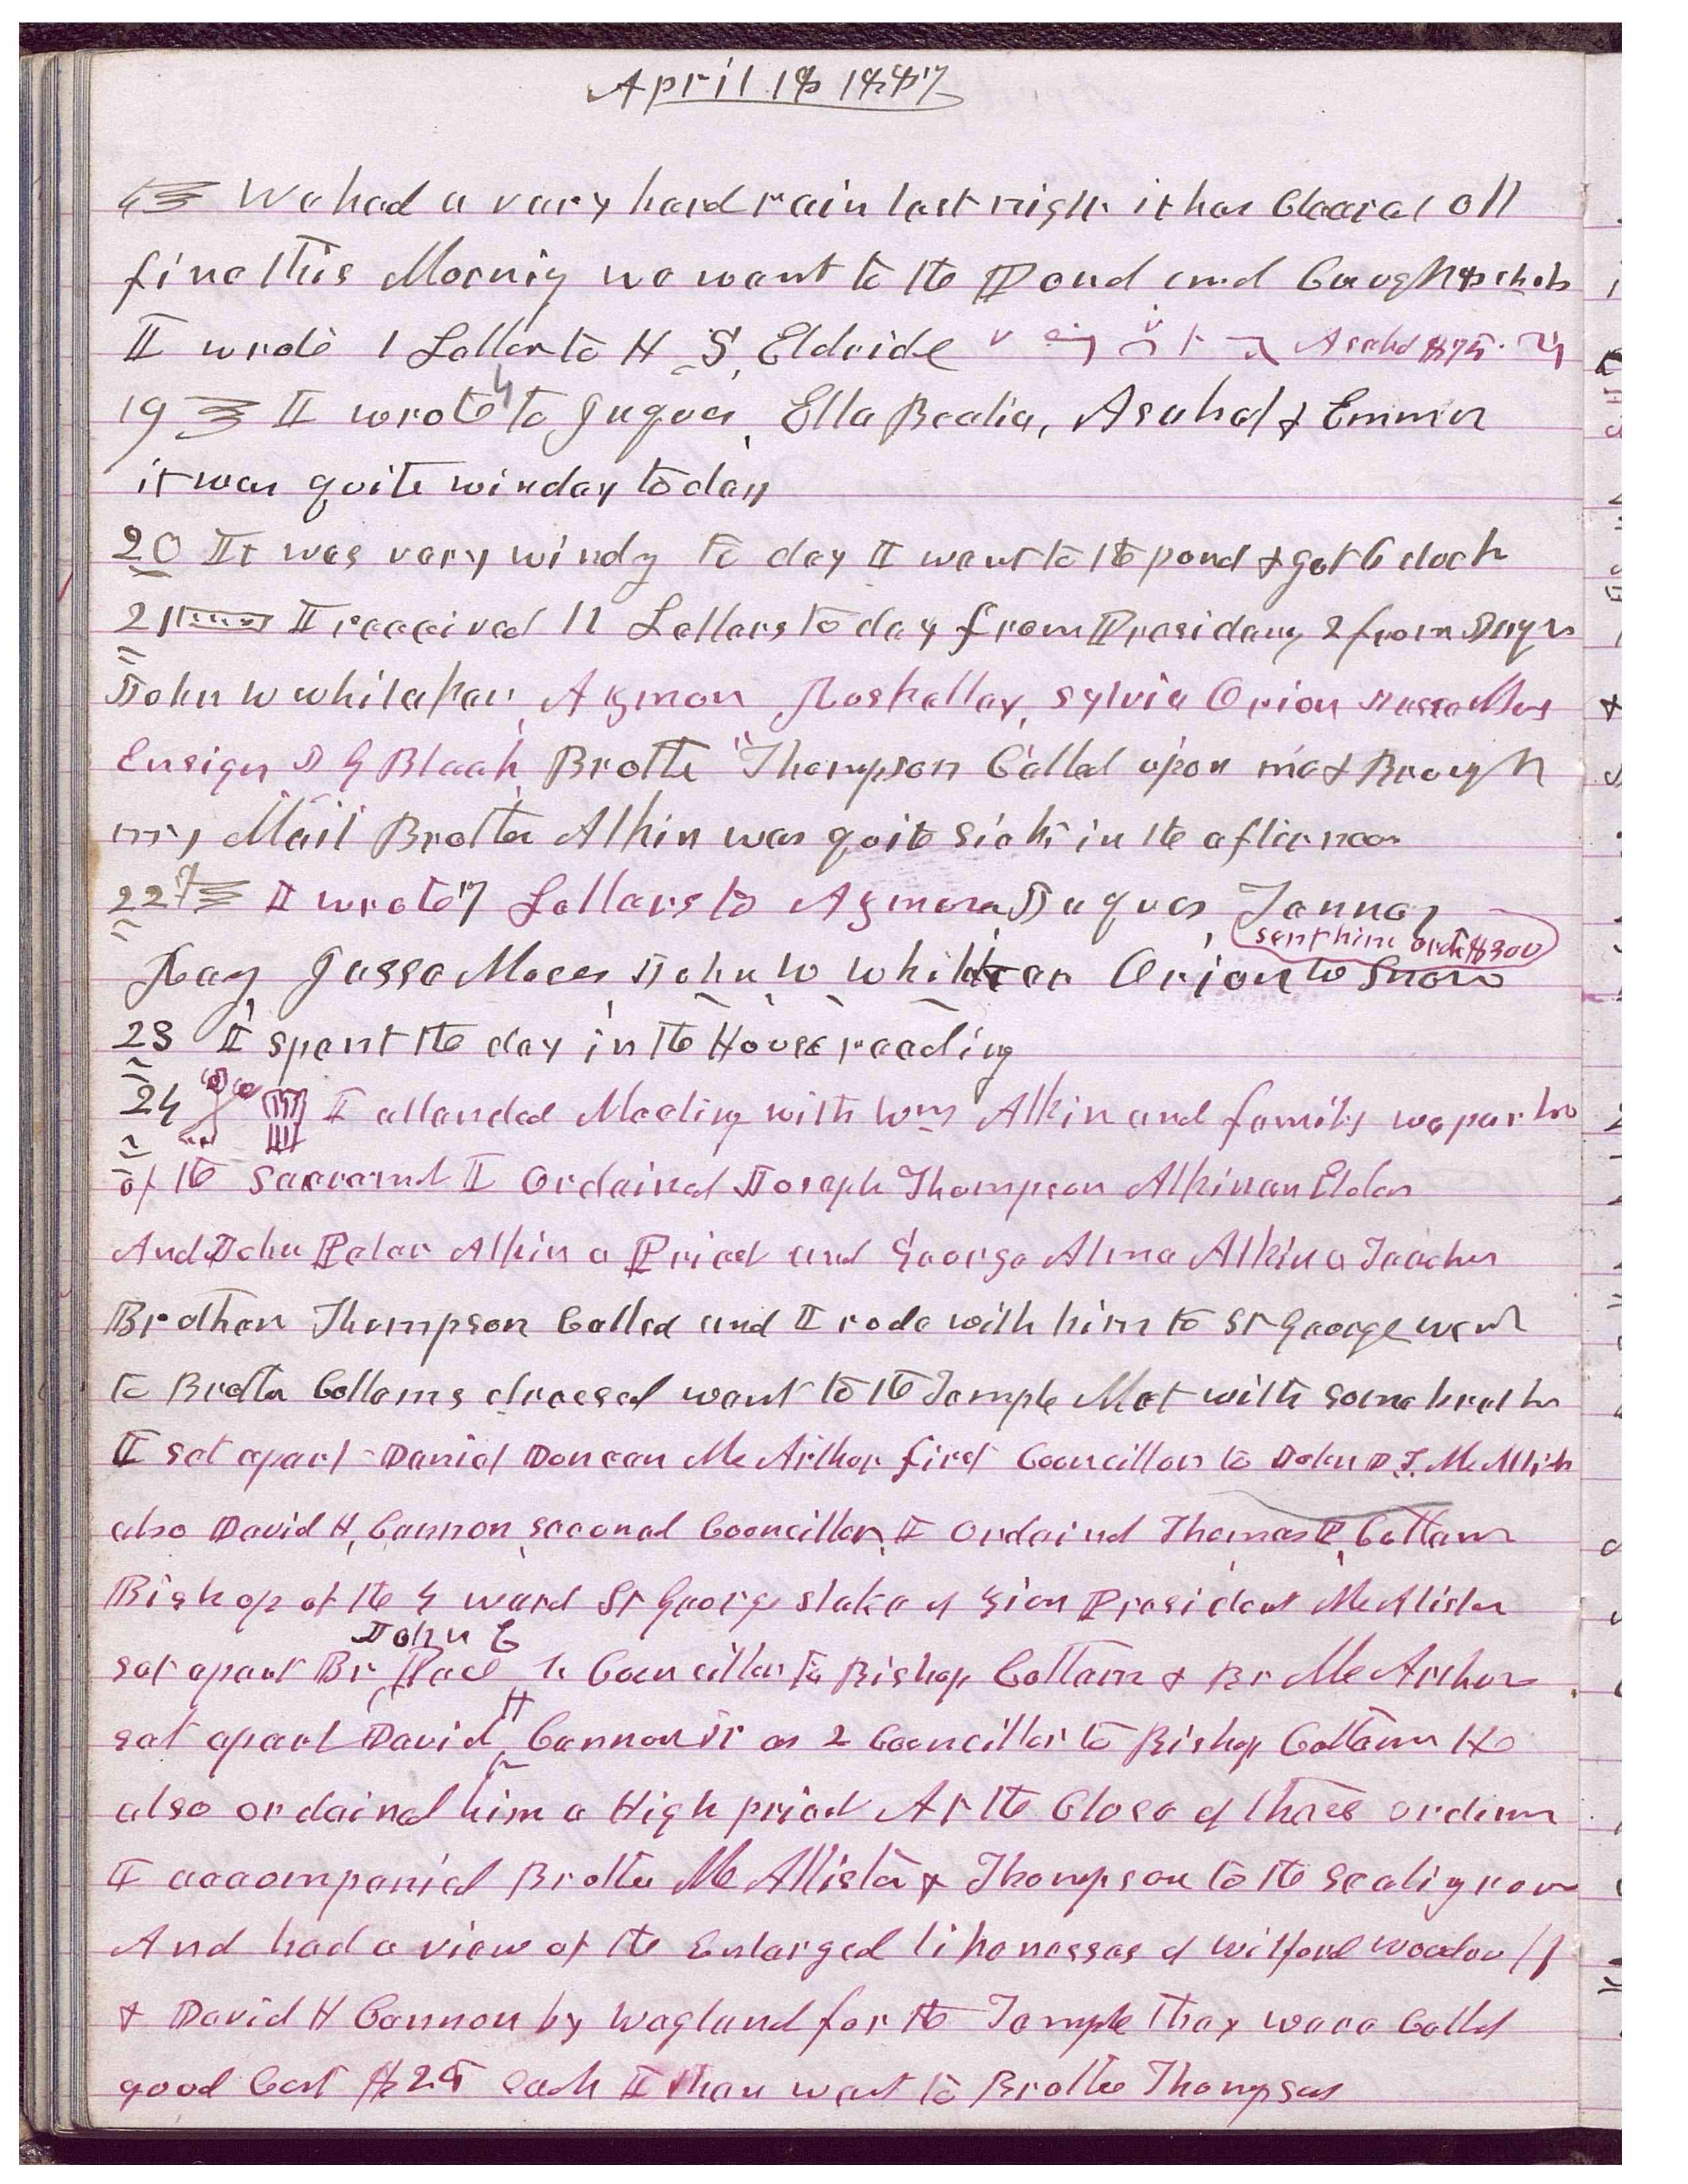 April 18 1887
We had a very hard rain last night it has Cleared off
fine this Morning we went to the Pond and Caught
I wrote 1 Letter to H S, Eldride Asahel $75.
19 I wrote 4 to Juques, Ella Beatie, Asahel & Emma
it was quite winday to day
20 It was very windy to day I went to the pond & got 6 duck
21 I received 11 Letters to day from Presidancy 2 from
John W Whitaker, Azmon Roskelley, Sylvia Orion Jesse Moses
Ensign Brother Thompson Called upon me & Brough
my Mail Brother Atkin was quite sick in the afternoon
22 I wrote 7 Letters to Azmon Juques
sent him ordr $300
Jesse Moses John W Whitaker Orion W Snow
23 I spent the day in the House reading
24 I attended Meeting with Wm Atkin and family we partoo
of the Sacramnt I Ordained Joseph Thompson Atkin an Elder
And John Peter Atkin a Priest and George Alma Atkin a Teacher
Brother Thompson Called and I rode with him to St George went
to Brother Cottams dressed went to the Temple Met with some brethr
I set apart Daniel Duncan McArthur first Councillor to John D. T. McAllistr
also David H, Cannon, second Councillor, I Ordaind Thomas P, Cottam
Bishop of the 4 ward St George stake of Zion President McAlister
John E
set apart Br Pace 1 Councillor to Bishop Cottam & Br McArthur
H
set apart David Cannon Jr as 2 Councillor to Bishop Cottam He
also ordained him a High priest At the Close of these ordinn
I accompanied Brother McAllister & Thompson to the Sealing room
And had a view of the Enlarged likenesses of Wilford Woodruff
& David H Cannon by Wagland for the Temple They ware Calld
good Cost $25 each I than went to Brother Thompsons